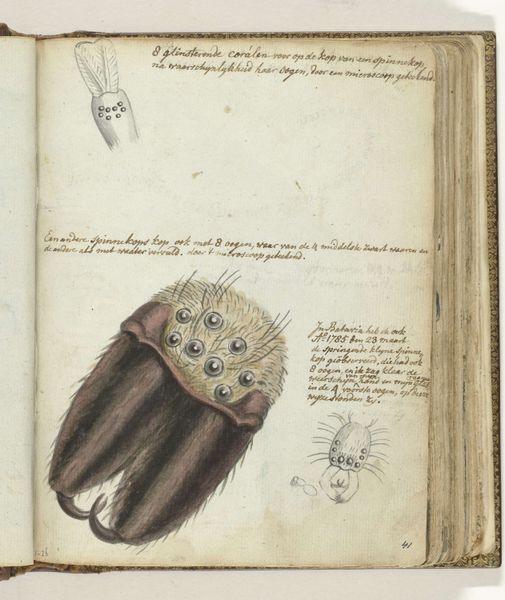 8 glinsterende coralen voor op de kop van een spinnekop,
na waarschynlykheid haar oogen, door een microscoop getekend.
Een andere spinnekops kop ook met 8 oogen, waar van de 4 middelste zwart waaren en
de andere als met water vervuld. door t microscoop getekend.
In Batavia heb ik ook
Aº 1785 den 23 maart
de springende kleyne spinne
kop geobserveerd, die had ook
8 oogen, en ik zag klaar de
weerschyn van myn hand en myn
in de 4 voorste oogen, op deeze
wyze stonden zy.
41